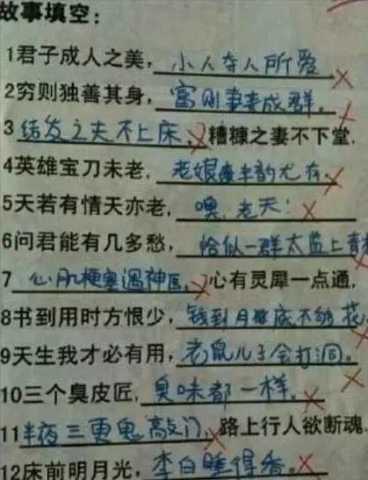 故事填空：
1君子成人之美，小人夺人所爱
2穷则独善其身，富则妻妻成群。
3结发之夫不上床，糟糠之妻不下堂.
4英雄宝刀未老，老娘丰韵尤存
5天若有情天亦老，噢，老天！
6问君能有几多愁，恰似一群太监上青
7心肌梗塞遇神医，心有灵犀一点通，
8书到用时方恨少，钱到月底不够花
9天生我才必有用，老鼠儿子会打洞。
10三个臭皮匠，臭味都一样。
11半夜三更鬼敲门，路上行人欲断魂.
12床前明月光，李白睡得香。